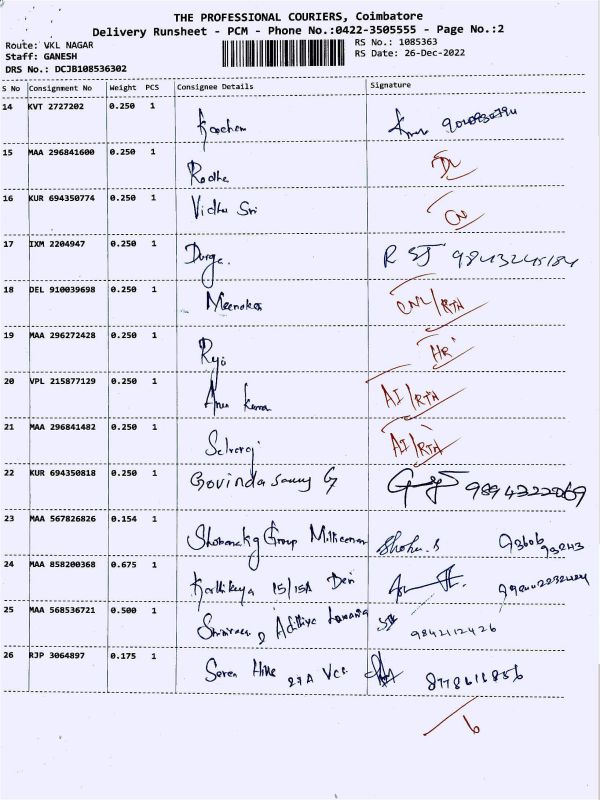 THE PROFESSIONAL COURIERS, Coimbatore
Delivery Runsheet - PCM - Phone No.:0422-3505555 - Page No.:2
Route: VKL NAGAR
RS No.: 1085363
Staff: GANESH
RS Date: 26-Dec-2022
DRS No.: DCJB108536302
S No Consignment No Weight PCS Consignee Details Signature
14 KVT 2727202 0.250 1
15 MAA 296841600 0.250 1 Radha DL
16 KUR 694350774 0.250 1 Vidhu Sri CN
17 IXM 2204947 0.250 1 Durga. 9843245184
18 DEL 910039698 0.250 1 CNL/RTN
19 MAA 296272428 0.250 1
20 VPL 215877129 0.250 1 AI/RTN
21 MAA 296841482 0.250 1 Selvaraj AI/RTN
22 KUR 694350818 0.250 1 Govinda samy G 9894322069
23 MAA 567826826 0.154 1 Group
24 MAA 858200368 0.675 1 Karthikeya 15/15A
25 MAA 568536721 0.500 1 9842112426
26 RJP 3064897 0.175 1 27A 8778611856
6